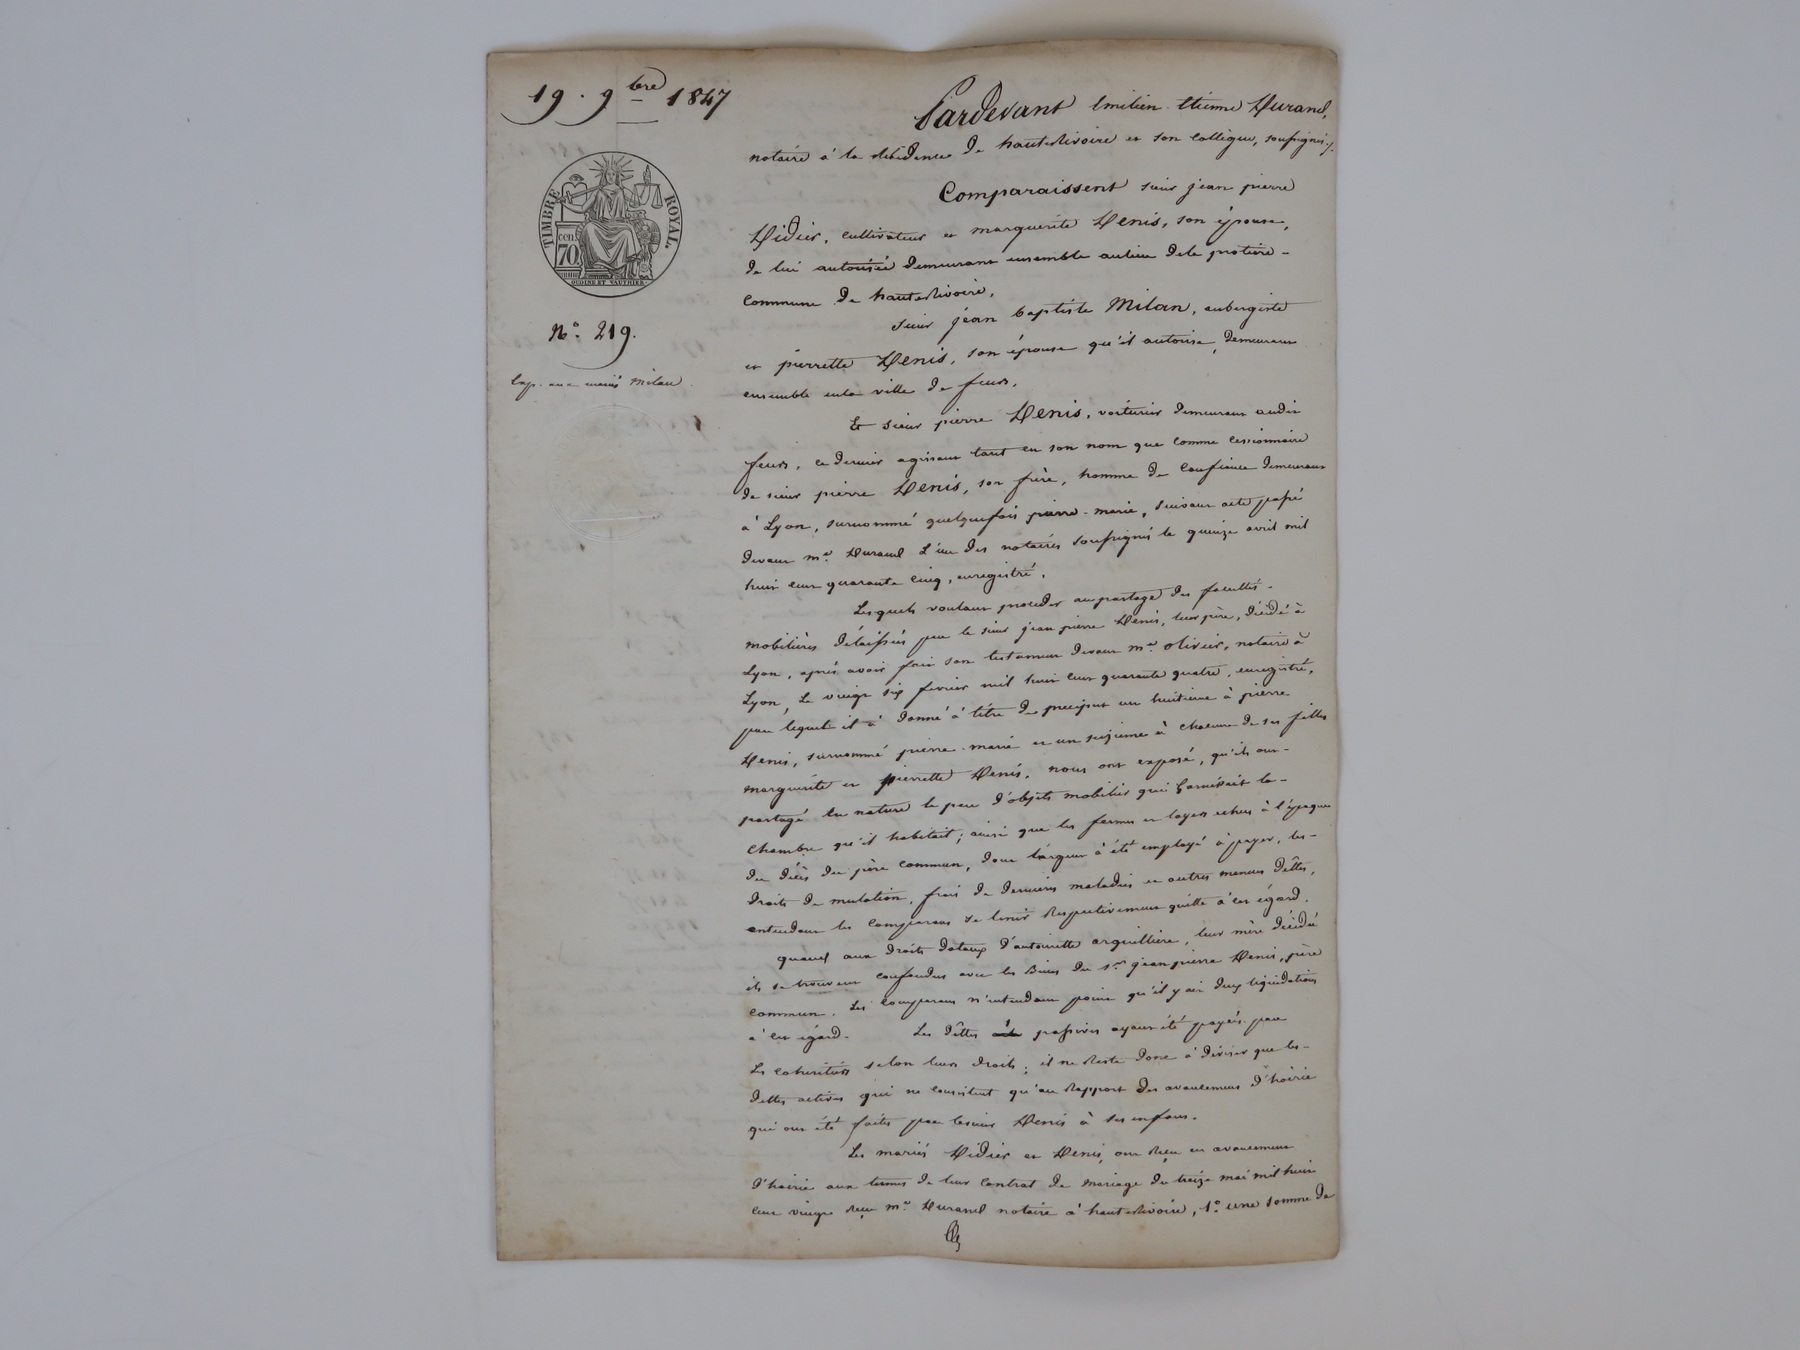 19. 9bre 1847
TIMBRE ROYAL.
cen. 70
OUDINE ET VAUTHIER
N° 219.
Exp. aux mariés Milan
Pardevant Emilien Etienne Durand,
notaire à la Résidence de hauteRivoire et son Collègue, soussignés.
Comparaissent sieur jean pierre
Didier, cultivateur et marguerite Denis, son épouse,
de lui autorisée demeurant ensemble au lieu de la
commune de hauteRivoire,
sieur jean baptiste Milan, aubergiste
et pierrette Denis, son épouse qu'il autorise, demeurant
ensemble en la ville de feurs,
Et sieur pierre Denis, voiturier demeurant audit
feurs, ce dernier agissant tant en son nom que comme cessionnaire
de sieur pierre Denis, son frère, homme de confiance demeurant
à Lyon, surnommé quelquefois pierre-marie, suivant acte passé
devant me. Durand L'un des notaires soussignés le quinze avril mil
huit cent quarante cinq, enregistré.
Lesquels voulant procéder au partage des facultés
mobilières délaissées par le sieur jean pierre Denis, leur père, décédé à
Lyon, après avoir fait son testament devant me. olivier, notaire à
Lyon, Le vingt six fevrier mil huit cent quarante quatre, enregistré,
par lequel il à donné à titre de preciput un huitieme à pierre
Denis, surnommé pierre-marie et un seizieme à chacune de ses filles
marguerite et pierrette Denis. nous ont exposé, qu'ils ont
partagé en nature le peu d'objets mobilier qui Garnissait la
chambre qu'il habitait; ainsi que les fermes et loyers echus à l'époque
du décès du père commun, dont l'argent à été employé à payer, les
droits de mutation, frais de dernières maladies et autres menues dêttes,
entendant les Comparans se tenir Respectivement quitte à cet égard.
quand aux droits dotaux d'antoinette arguillière, leur mère décédée
ils se trouvent confondus avec les Biens du sr. jean pierre Denis, père
commun. Les comparans n'entendant point qu'il y ait deux liquidations
à cet égard. Les dêttes passives ayant été payées par
Les cohéritiers selon leurs droits; il ne Reste donc à diviser que les
dettes actives qui ne consistent qu'au Rapport des avancemens d'hoirie
qui ont été faites par le sieur Denis à ses enfans.
Les mariés Didier et Denis, ont Reçu en avancement
d'hoirie aux termes de leur Contrat de mariage du treize mai mil huit
cent vingt Reçu me. Durand notaire à hauteRivoire, 1°. une somme de